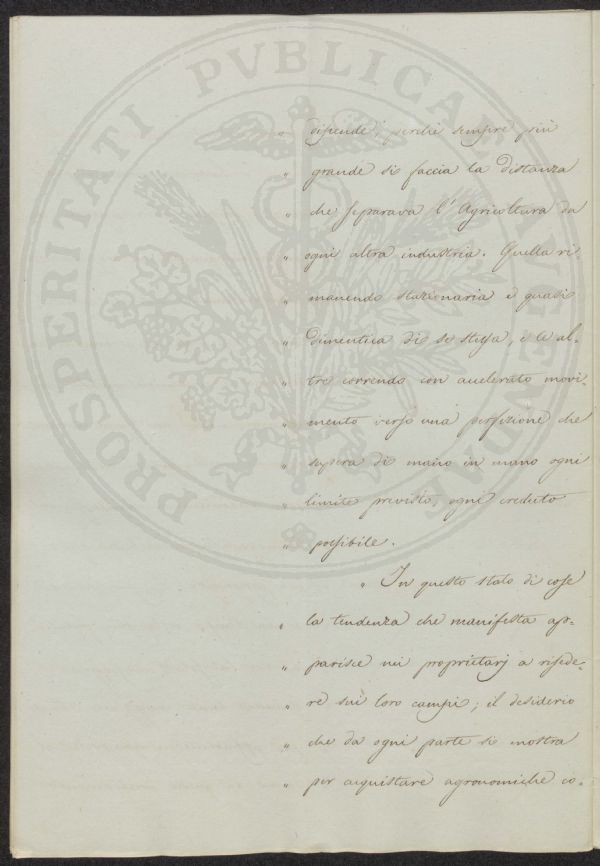 PROSPERITATI PVBLICAE AVGENDAE
" dipende, perchè sempre più
" grande si faccia la distanza
" che separava l'Agricoltura da
" ogni altra industria. Quella ri
" manendo stazionaria e quasi
" dimentica di se stessa, e le al-
" tre correndo con accelerato movi-
" mento verso una perfezione che
" supera di mano in mano ogni
" limite previsto, ogni creduto
" possibile.
" In questo stato di cose
" la tendenza che manifesta ap-
" parisce nei proprietarj a risiede-
" re sui loro campi; il desiderio
" che da ogni parte si mostra
" per acquistare agronomiche co-